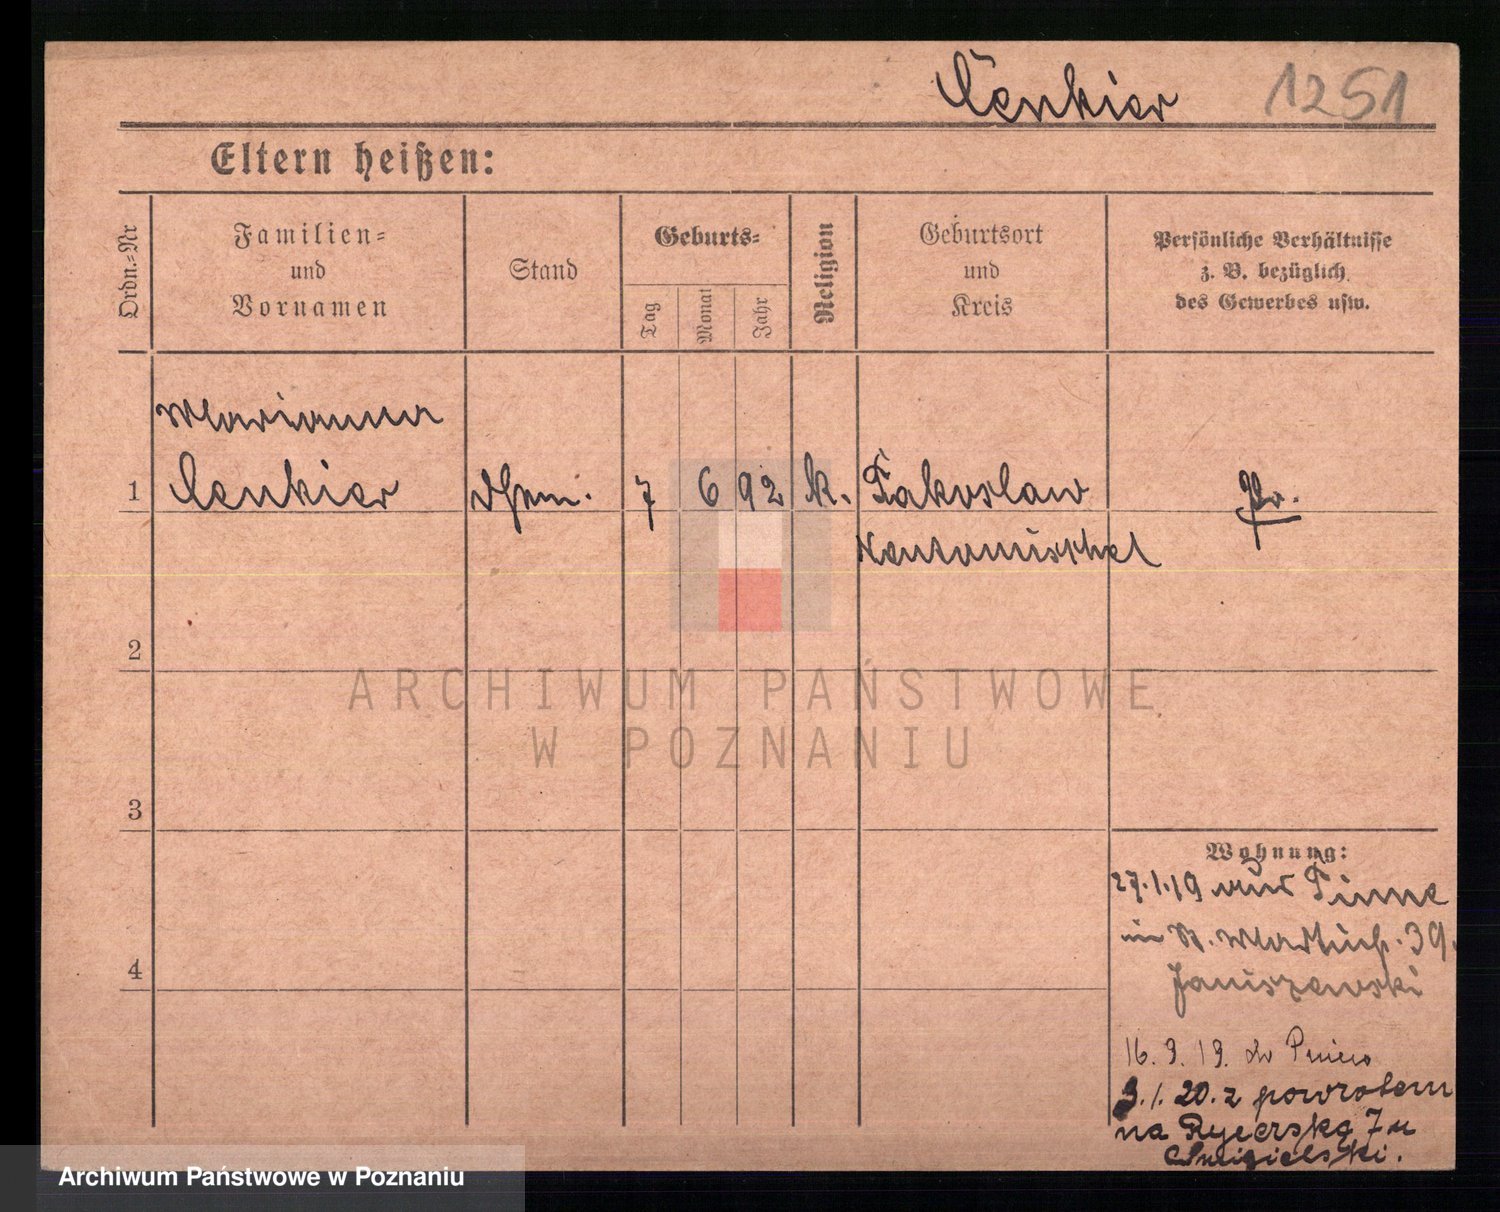 Cenkier 1251
Eltern heißen:
Ordn.-Nr
Familien-
und
Vornamen
Stand
Geburts-
Tag
Monat
Jahr
Religion
Geburtsort
und
Kreis
Persönliche Verhältnisse
z. B. bezüglich
des Gewerbes usw.
Marianna
1 Cenkier 7 6 92 k. Pakoslaw
Neutomischel
2
ARCHIWUM PAŃSTWOWE
W POZNANIU
3
Wohnung:
27.1.19 aus Pinne
39.
4
Janiszewski
16. 9. 19. do Pniew
3.1.20. z powrotem
na Rycerską 7 u
Śmigielski.
Archiwum Państwowe w Poznaniu